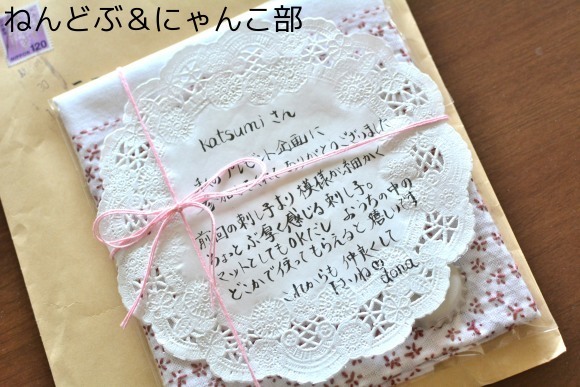 ねんどぶ&にゃんこ部
120
Katsumiさん
プレゼント企画に
ありがとうございました
前回の刺し子より模様が細かく
ちょっとぶ厚く感じる刺し子。
マットとしてもOKだし おうちの中の
どこかで使ってもらえると嬉しいです
これからも仲良くして
ね
dona